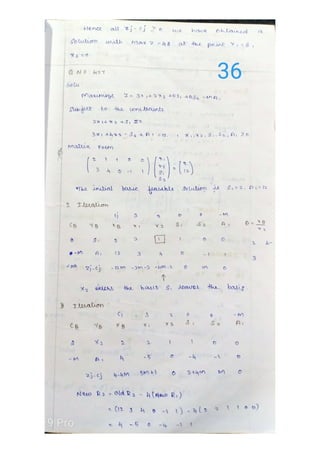 Hence all Zj-Cj ≥ 0 we have obtained a
solution with max Z = 48 at the point
x2=0
36
Solu
Maximize Z = 3x1+2x2+0S1+0S2-MA1
Subject to the constraints
2x1+x2+S1=2
3x1+4x2-S2+A1=12 , x1,x2,S1,S2,A1 ≥0
Matrix Form
2 1 1 0 0
3 4 0 -1 1
x1
x2
S1
S2
=
2
12
The initial basic feasible solution is S1=2, A1=12
I Iteration
Cj 3 2 0 0 -M
CB YB XB x1 x2 S1 S2 A1
0 S1 2 2 1 1 0 0 2
-M A1 12 3 4 0 -1 1 3
Zj-Cj -12M -3M-3 -4M-2 0 M 0
↑
x2 enters the basis S1 leaves the basis
II Iteration
Cj 3 2 0 0 -M
CB YB XB x1 x2 S1 S2 A1
2 x2 2 2 1 1 0 0
-M A1 4 -5 0 -4 -1 1
Zj-Cj 4-4M 5M+1 0 2+4M M 0
New R2 = Old R2 - 4(New R1)
= (12 3 4 0 -1 1) - 4(2 2 1 1 0 0)
= 4 -5 0 -4 -1 1
9 Pro